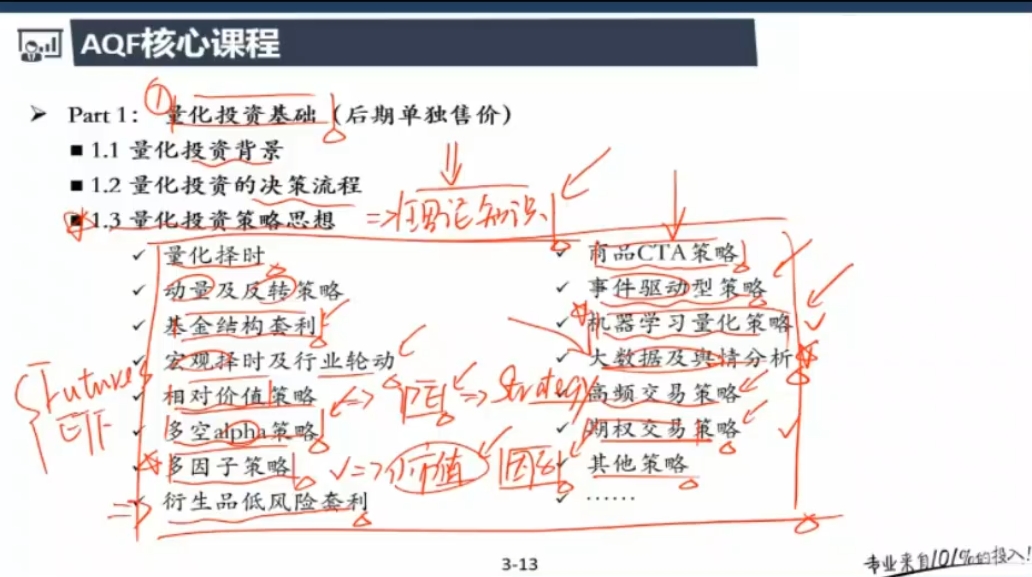 AQF核心课程
Part 1： 量化投资基础（后期单独售价）
1.1 量化投资背景
1.2 量化投资的决策流程
1.3 量化投资策略思想
⇒ 理论知识
量化择时
动量及反转策略
基金结构套利
宏观择时及行业轮动
相对价值策略
多空alpha策略
多因子策略
衍生品低风险套利
商品CTA策略
事件驱动型策略
机器学习量化策略
大数据及舆情分析
高频交易策略
期权交易策略
其他策略
……
Future
ETF
PE ⇒ Strategy
⇒ 价值 因子
3-13
专业来自101%的投入!